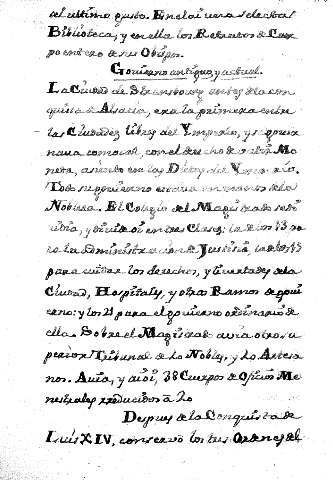 al ultimo gusto. En el ai vera selectas
Biblioteca, y en ella los Retratos de Cuer
po entero de sus Obispos.
Govierno antiguo, y actual.
La Ciudad de Strasbourg antes de la con
quista de Alsacia, era la primera entre
las Ciudades libres del Ymperio, y se gover
nava como tal, con el derecho de batir Mo
neta, asiento en las Dietas del Ymperio.
Todo su govierno estava en manos de la
Nobleza. El Colegio de el Magistrado se di
vidia, y divide oi en tres Clases: la de los 13 pa
ra la Administracion de Justicia, la de los 15
para cuidar los derechos, y livertades de la
Ciudad, Hospitales, y otros Ramos de govi
erno: y los 21 para el govierno ordinario de
ella. Sobre el Magistrado avia otro su
perior Tribunal de 10 Nobles, y 20 Artesa
nos. Avia, y ai oi, 38 Cuerpos de Oficios Me
nestrales reducidos a 20
Despues de la Conquista de
Luis XIV, conservó los tres Ordenes del